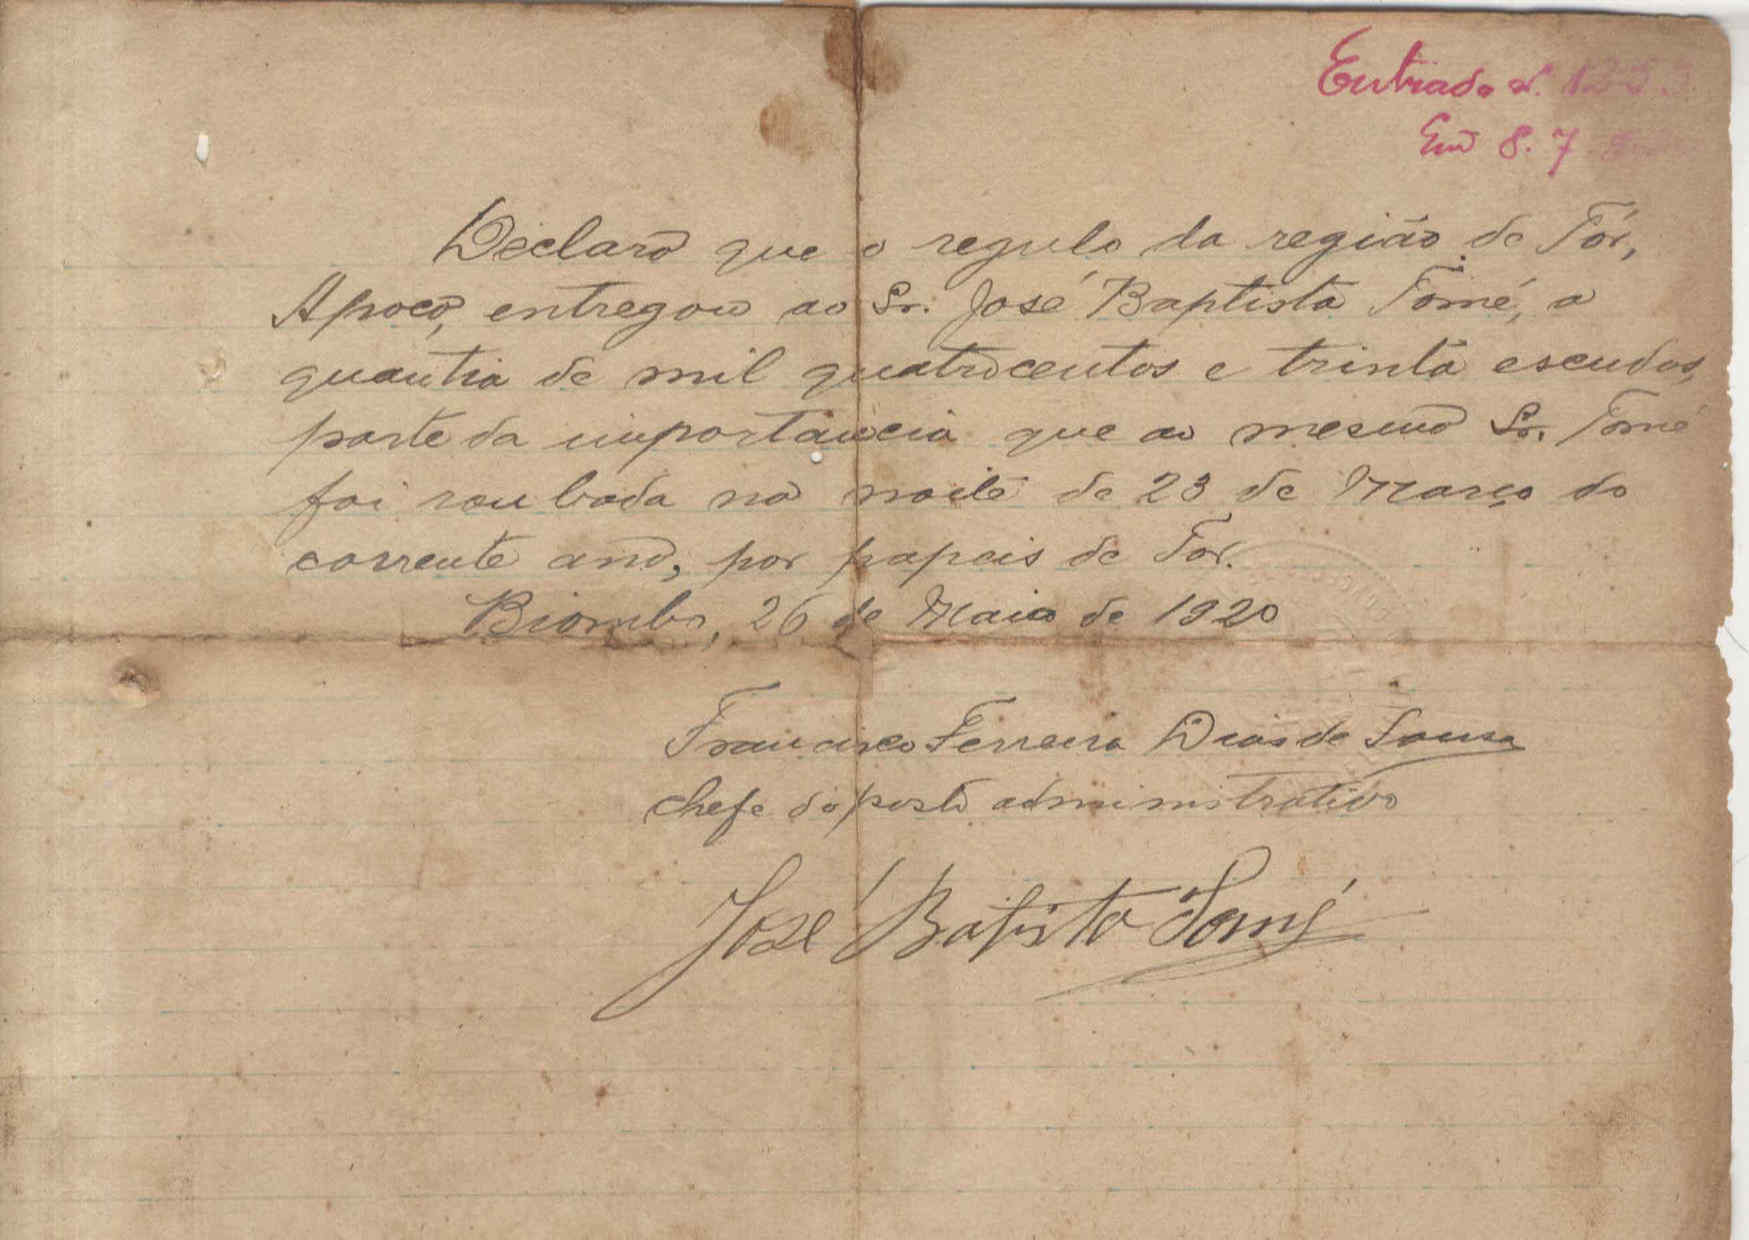 Entrada n.
Em 8.7
Declaro que o regulo da região de Tôr,
Apoco, entregou ao Sr. José Baptista Tomé, a
quantia de mil quatrocentos e trinta escudos,
parte da importancia que ao mesmo Sr. Tomé
foi roubada na noite de 23 de Março do
corrente ano, por papeis de Tor.
Biombo, 26 de Maio de 1920
Francisco Ferreira Dias de Sousa
Chefe do posto administrativo
José Batista Tomé